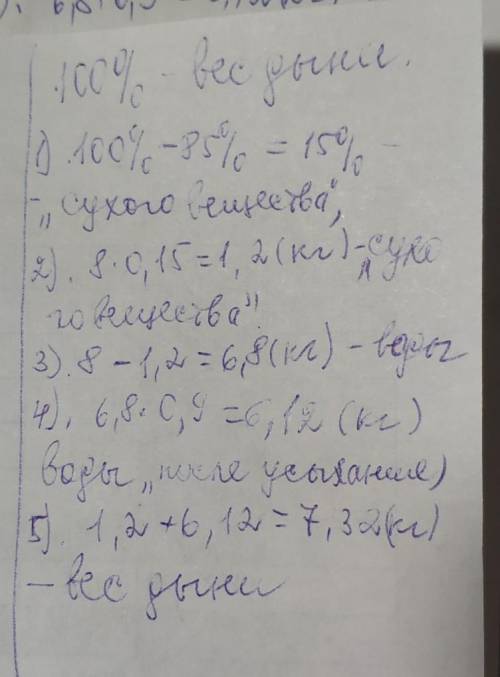 100% - вес дыни.
1). 100% - 85% = 15% -
- „сухого вещества",
2). 8·0,15=1,2(кг)-„сухо
го вещества"
3). 8 - 1,2=6,8(кг) - воды
4). 6,8·0,9=6,12 (кг)
воды „после усыхания)
5). 1,2+6,12=7,32(кг)
- вес дыни